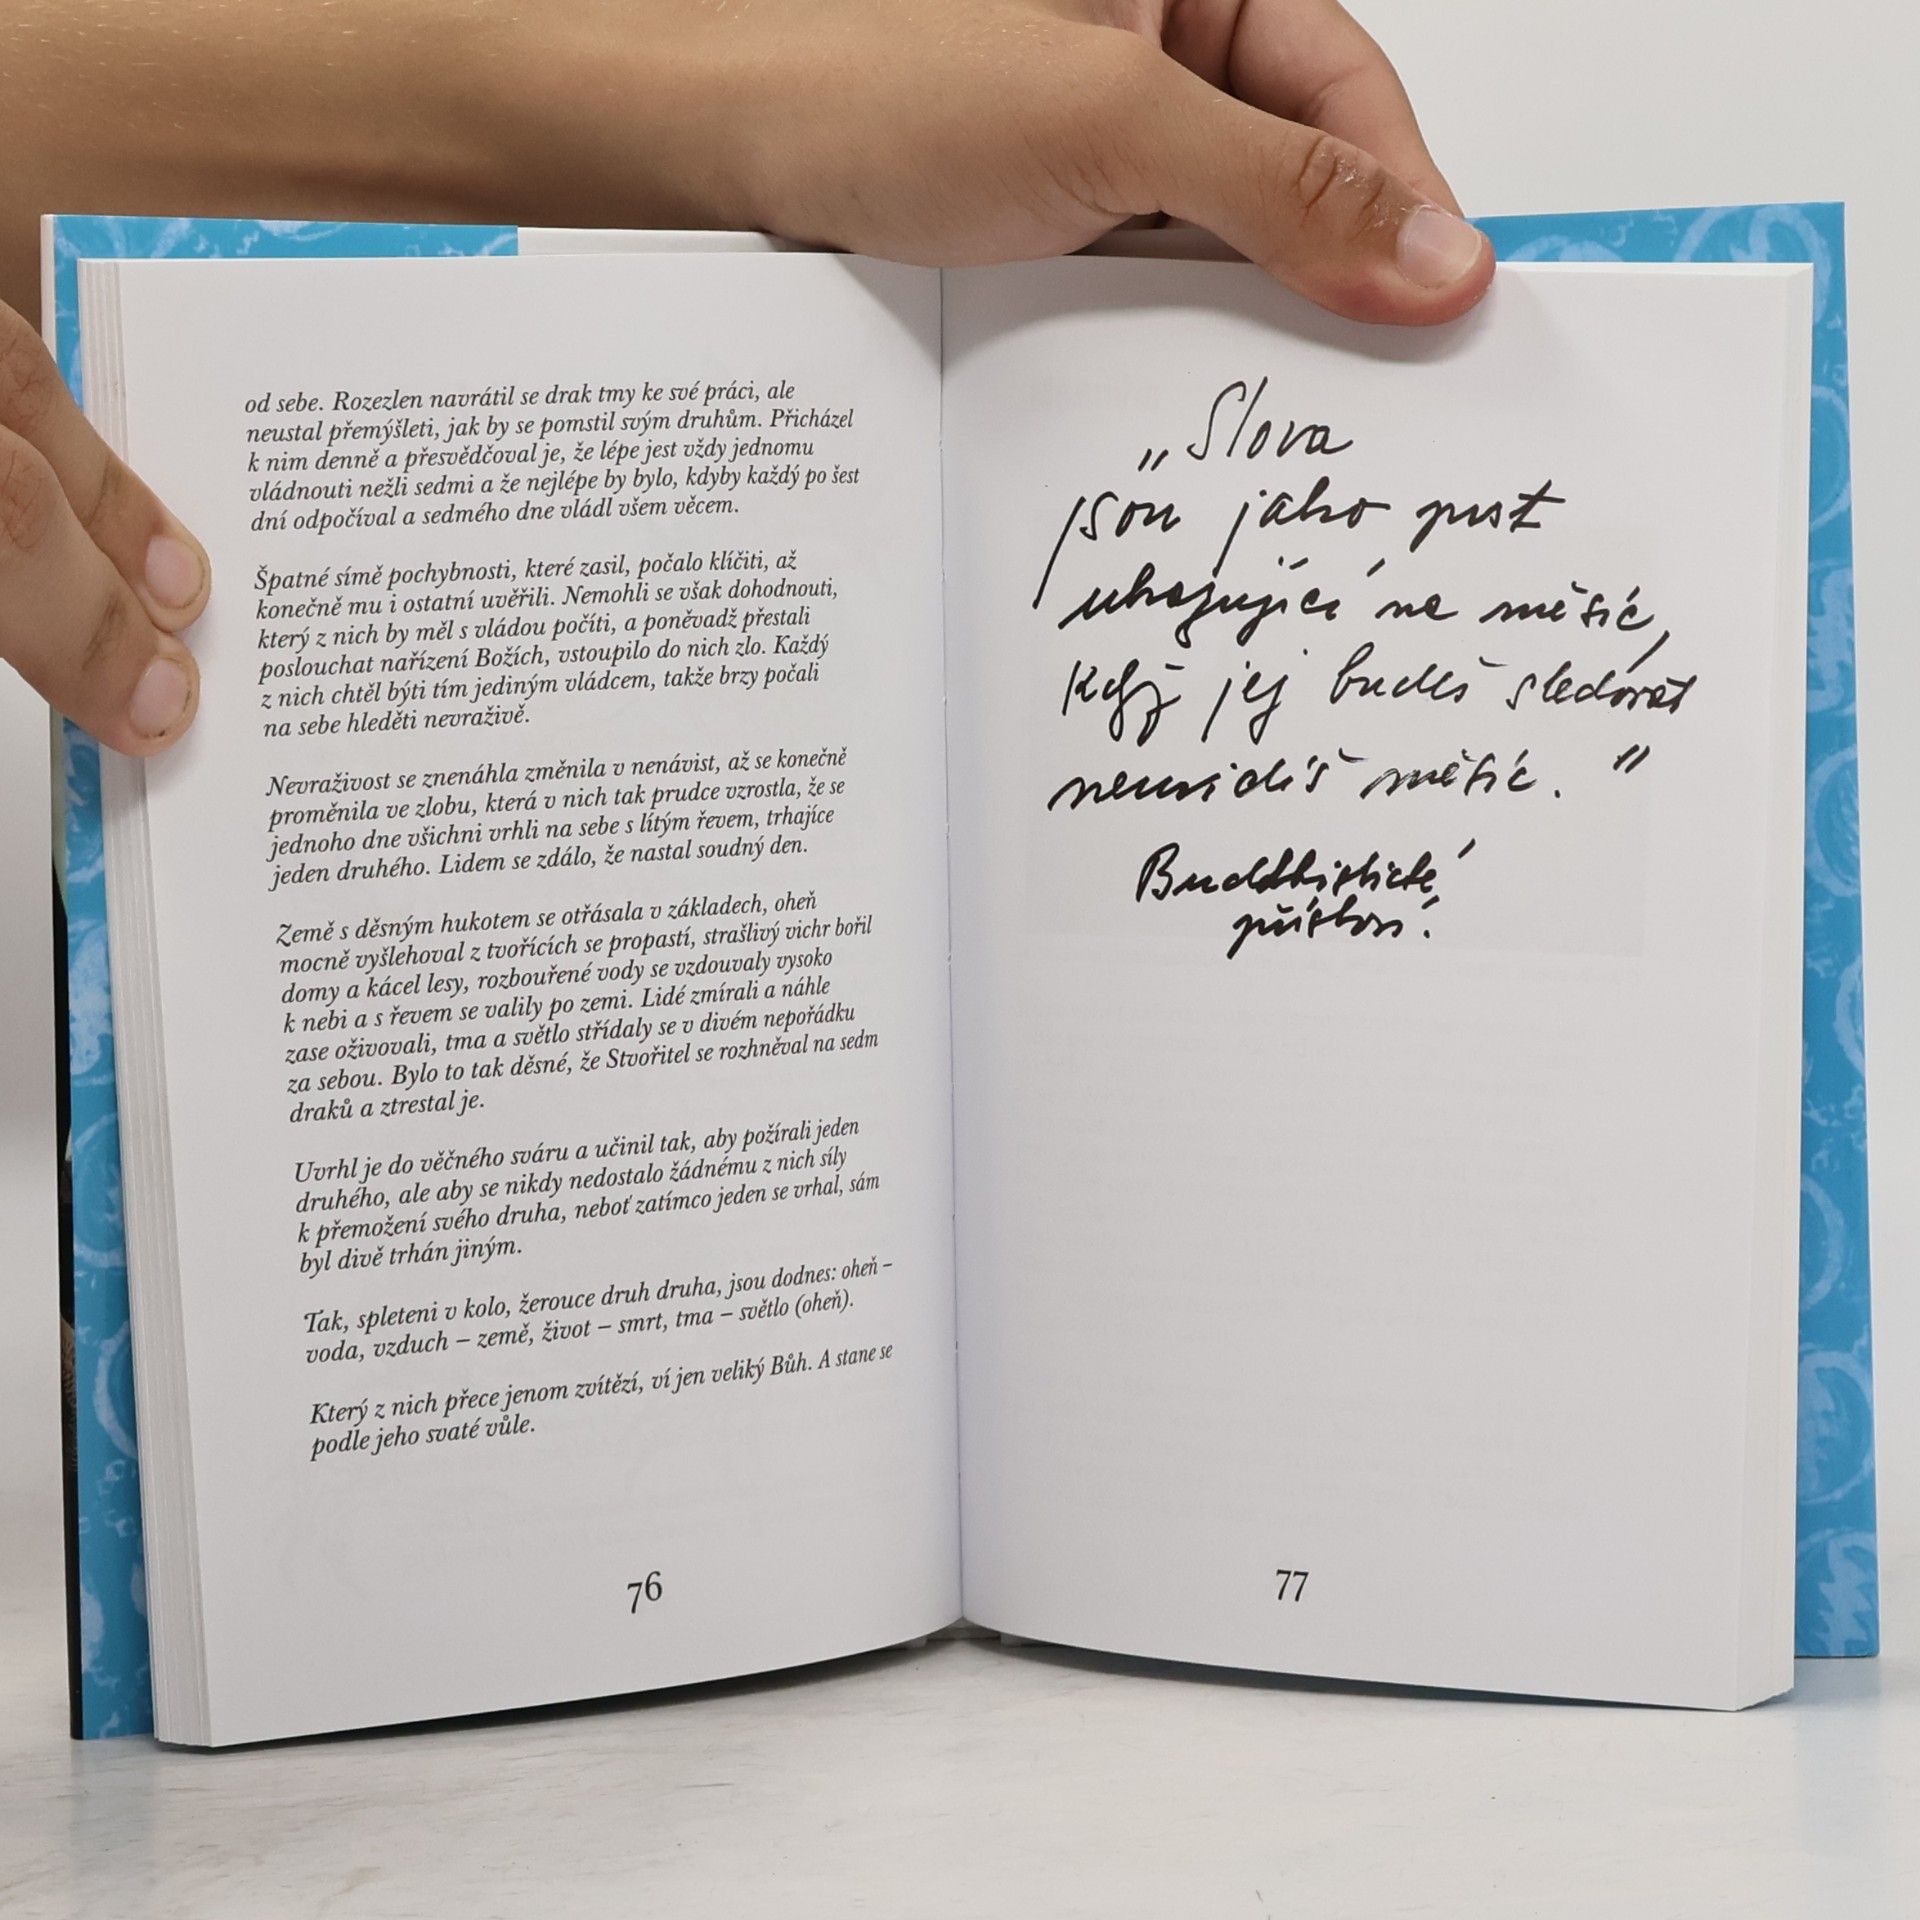 od sebe. Rozezlen navrátil se drak tmy ke své práci, ale
neustal přemýšleti, jak by se pomstil svým druhům. Přicházel
k nim denně a přesvědčoval je, že lépe jest vždy jednomu
vládnouti nežli sedmi a že nejlépe by bylo, kdyby každý po šest
dní odpočíval a sedmého dne vládl všem věcem.
Špatné símě pochybnosti, které zasil, počalo klíčiti, až
konečně mu i ostatní uvěřili. Nemohli se však dohodnouti,
který z nich by měl s vládou počíti, a poněvadž přestali
poslouchat nařízení Božích, vstoupilo do nich zlo. Každý
z nich chtěl býti tím jediným vládcem, takže brzy počali
na sebe hleděti nevraživě.
Nevraživost se znenáhla změnila v nenávist, až se konečně
proměnila ve zlobu, která v nich tak prudce vzrostla, že se
jednoho dne všichni vrhli na sebe s lítým řevem, trhajíce
jeden druhého. Lidem se zdálo, že nastal soudný den.
Země s děsným hukotem se otřásala v základech, oheň
mocně vyšlehoval z tvořících se propastí, strašlivý vichr bořil
domy a kácel lesy, rozbouřené vody se vzdouvaly vysoko
k nebi a s řevem se valily po zemi. Lidé zmírali a náhle
zase oživovali, tma a světlo střídaly se v divém nepořádku
za sebou. Bylo to tak děsné, že Stvořitel se rozhněval na sedm
draků a ztrestal je.
Uvrhl je do věčného sváru a učinil tak, aby požírali jeden
druhého, ale aby se nikdy nedostalo žádnému z nich síly
k přemožení svého druha, neboť zatímco jeden se vrhal, sám
byl divě trhán jiným.
Tak, spleteni v kolo, žerouce druh druha, jsou dodnes: oheň –
voda, vzduch – země, život – smrt, tma – světlo (oheň).
Který z nich přece jenom zvítězí, ví jen veliký Bůh. A stane se
podle jeho svaté vůle.
76
„Slova
jsou jako prst
ukazující na měsíc,
když jej budeš sledovat
neuvidíš měsíc."
Buddhistické
přísloví.
77